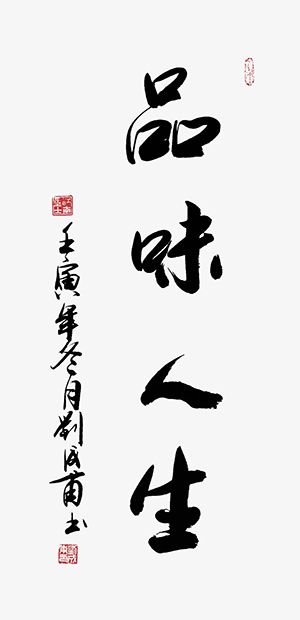 品味人生
壬寅年冬月劉成甫书